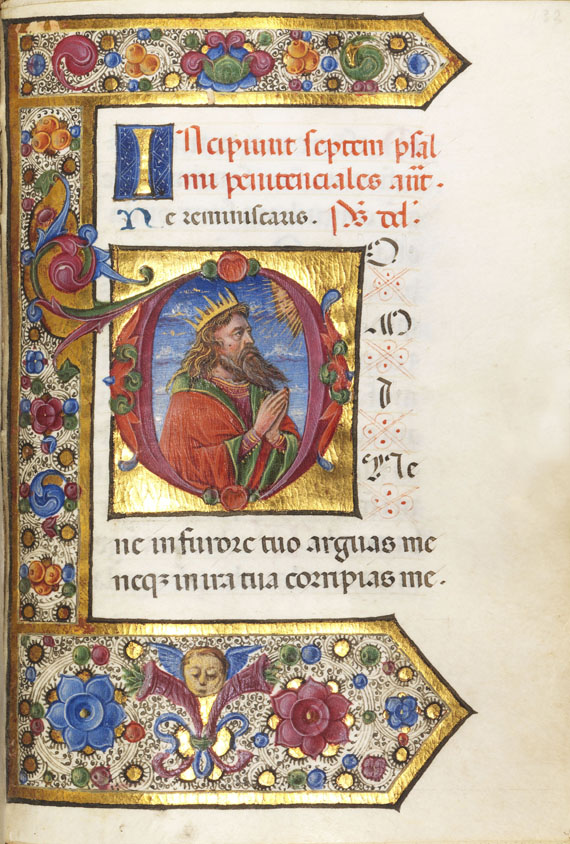 INcipiunt septem psal
mi penitenciales añt.
Ne reminiscaris. Ps dd:
O
M
I
Ne
ne in furore tuo arguas me
neqȝ in ira tua corripias me.